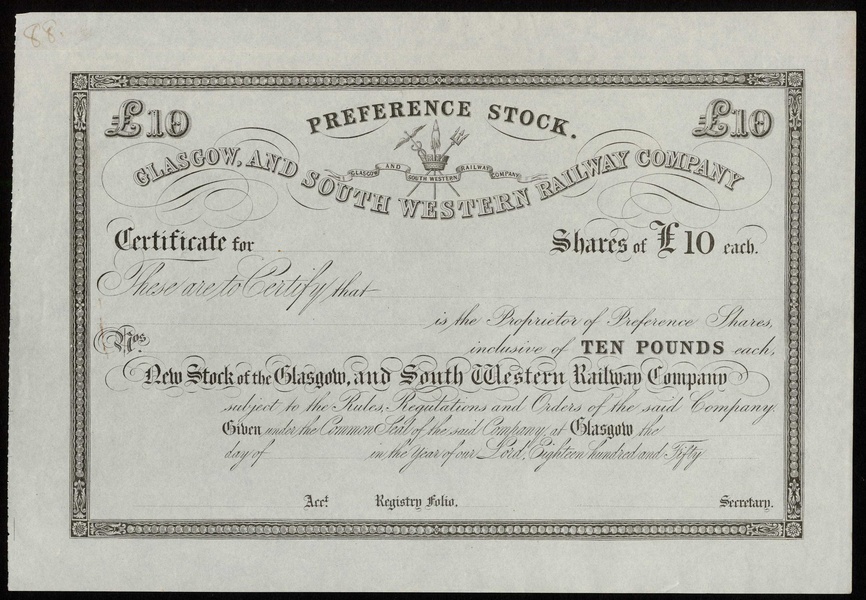 88.
£10 PREFERENCE STOCK. £10
GLASGOW AND SOUTH WESTERN RAILWAY COMPANY
GLASGOW, AND SOUTH WESTERN RAILWAY COMPANY
Certificate for Shares of £10 each.
These are to Certify that
is the Proprietor of Preference Shares,
Nos. inclusive of TEN POUNDS each,
New Stock of the Glasgow, and South Western Railway Company
subject to the Rules, Regulations and Orders of the said Company.
Given under the Common Seal of the said Company, at Glasgow the
day of in the Year of our Lord, Eighteen hundred and Fifty
Acct. Registry Folio. Secretary.